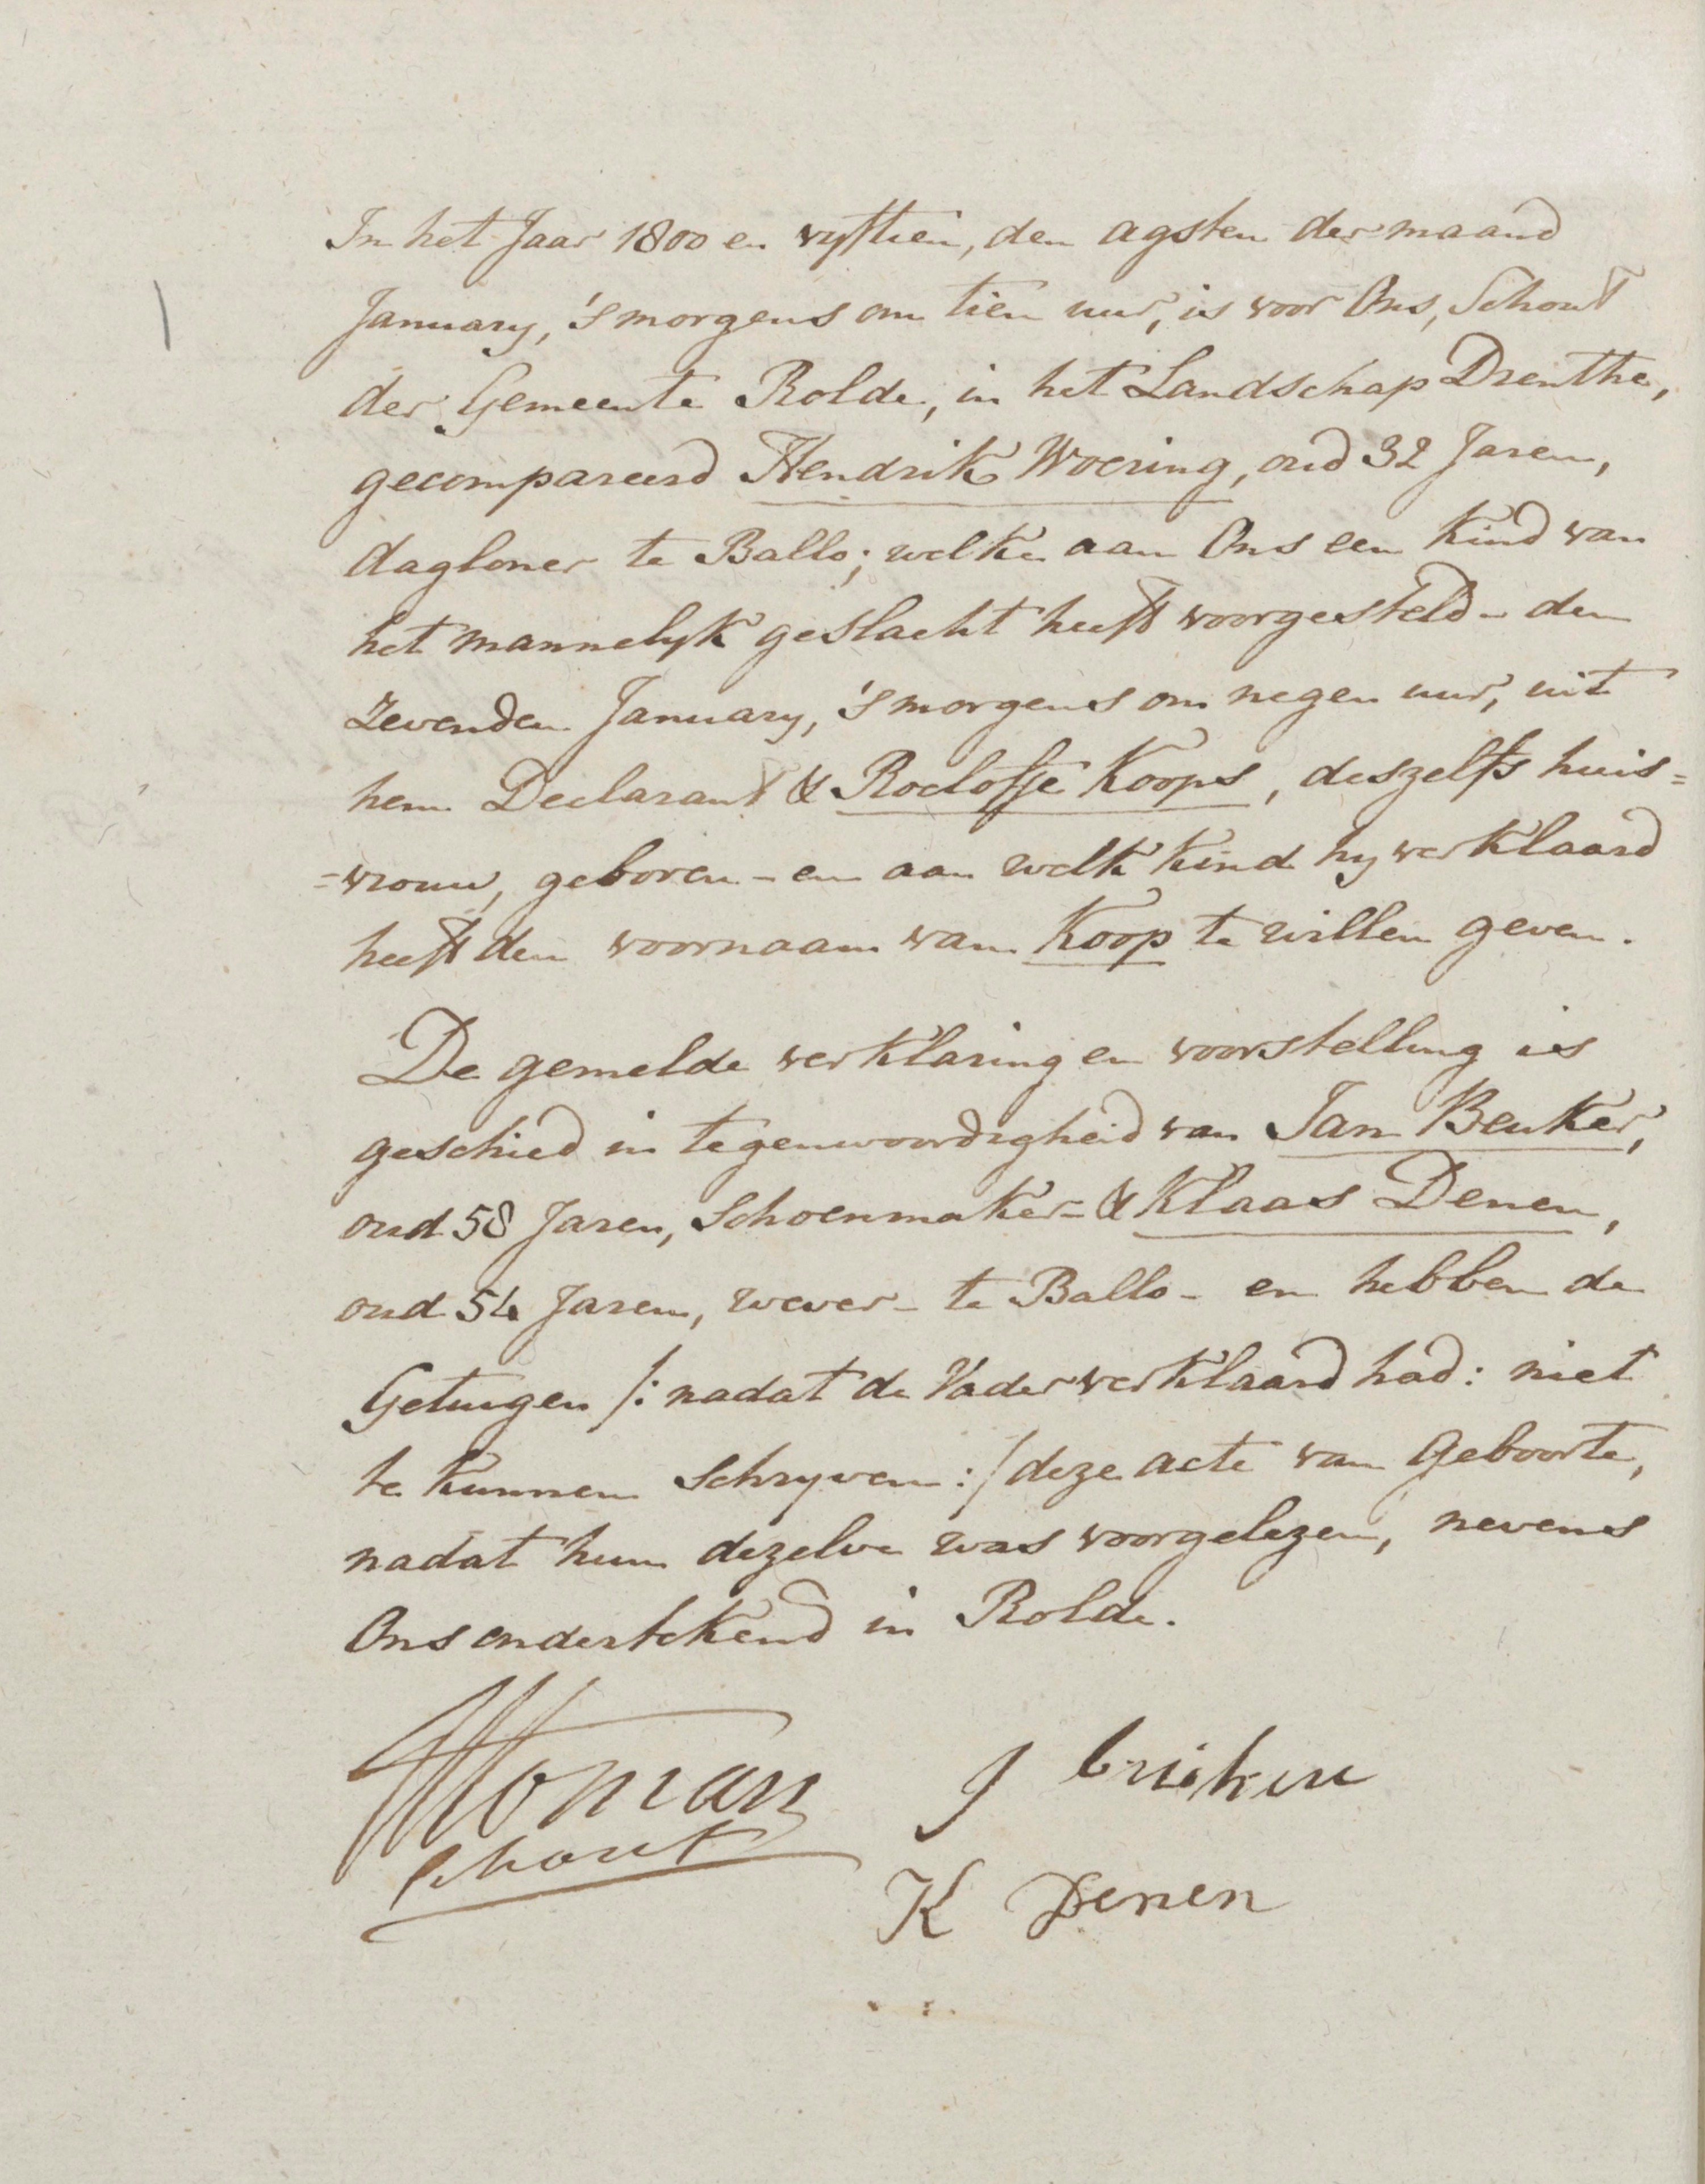 In het Jaar 1800 en vyftien, den agsten der maand
January, 's morgens om tien uur, is voor Ons, Schout
der Gemeente Rolde, in het Landschap Drenthe,
gecompareerd Hendrik Woering, oud 32 Jaren,
dagloner te Ballo; welke aan Ons een Kind van
het mannelyk geslacht heeft voorgesteld - den
Zevenden January, 's morgens om negen uur, uit
hem Declarant & Roelofje Koops, deszelfs huis=
=vrouw, geboren - en aan welk Kind hy verklaard
heeft den voornaam van Koop te willen geven.
De gemelde verklaring en voorstelling is
geschied in tegenwoordigheid van Jan Beuker,
oud 58 Jaren, Schoenmaker - & Klaas Denen,
oud 54 Jaren, wever - te Ballo - en hebben de
Getuigen /: nadat de Vader verklaard had: niet
te kunnen schryven :/ deze acte van Geboorte,
nadat hun dezelve was voorgelezen, nevens
Ons ondertekend in Rolde.
Homan
Schout
J
K Denen